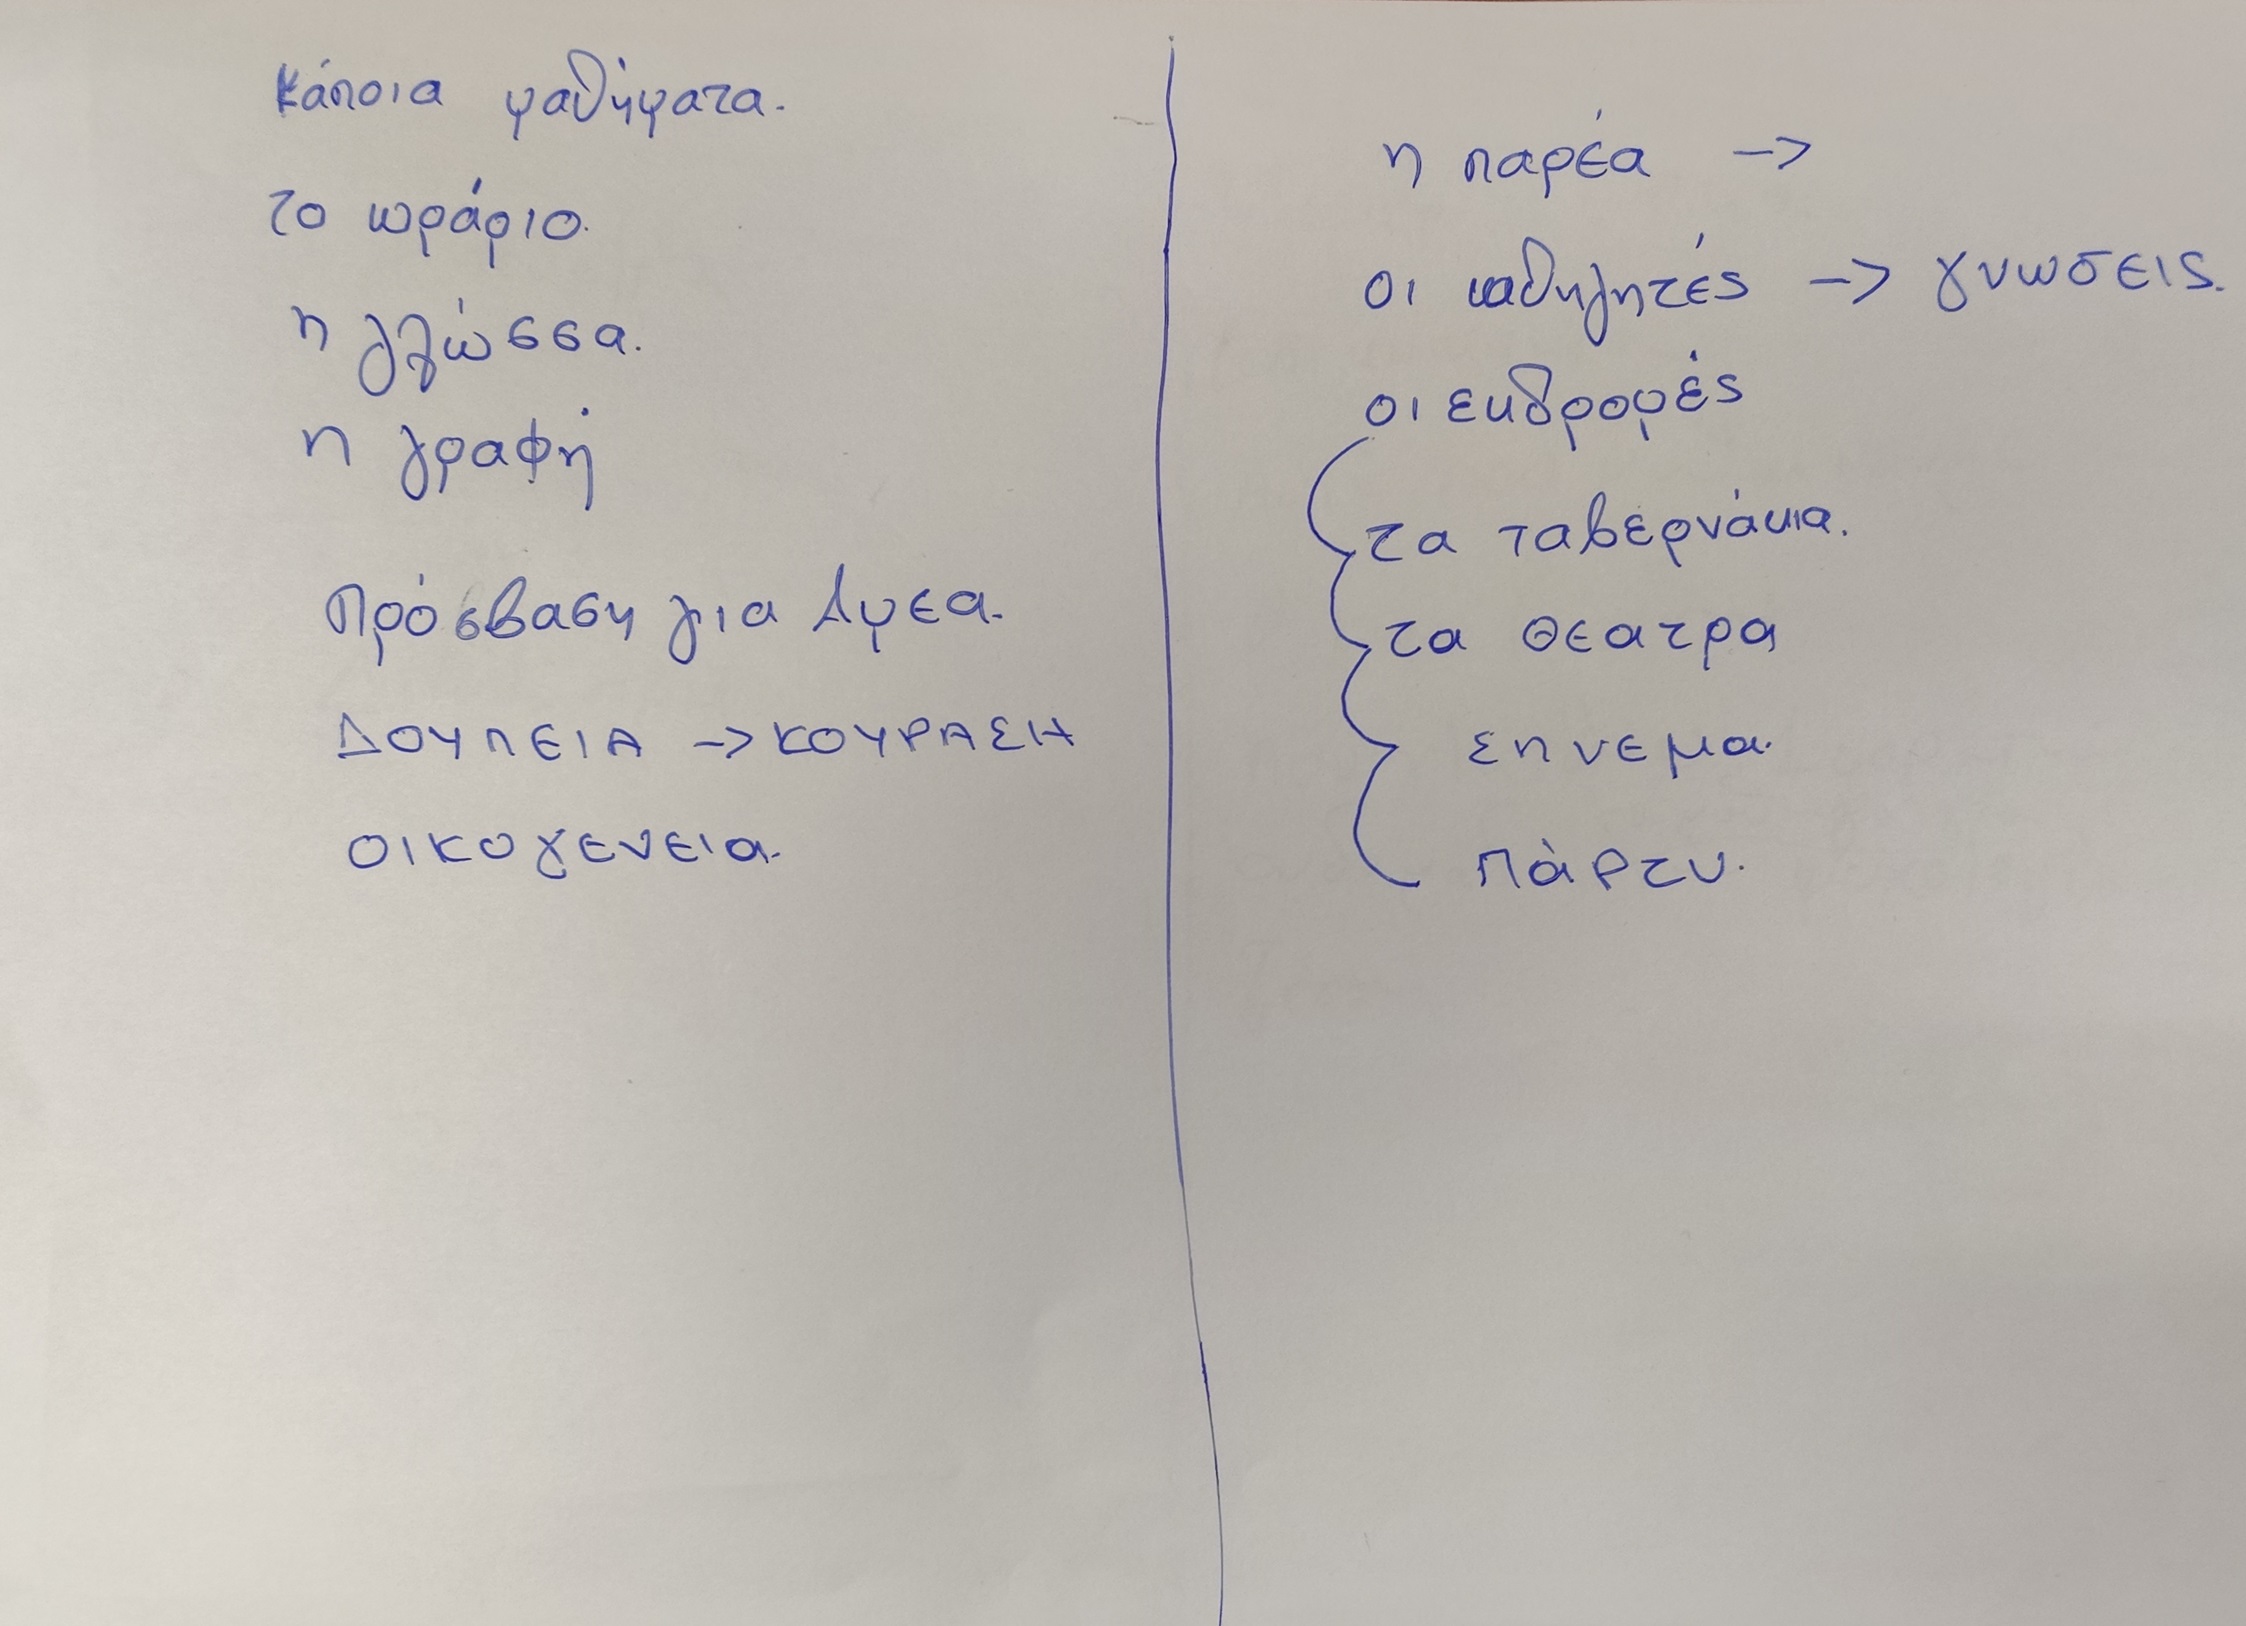 κάποια μαθήματα.
το ωράριο.
η γλώσσα.
η γραφή
Πρόσβαση για Αμεα.
ΔΟΥΠΕΙΑ -> ΚΟΥΡΑΣΗ
ΟΙΚΟγενεια.
η παρέα ->
οι καθηγητές -> γνωσεις.
οι εκδρομές
τα ταβερνάκια.
τα θεατρα
Σηνεμα.
Πάρτυ.